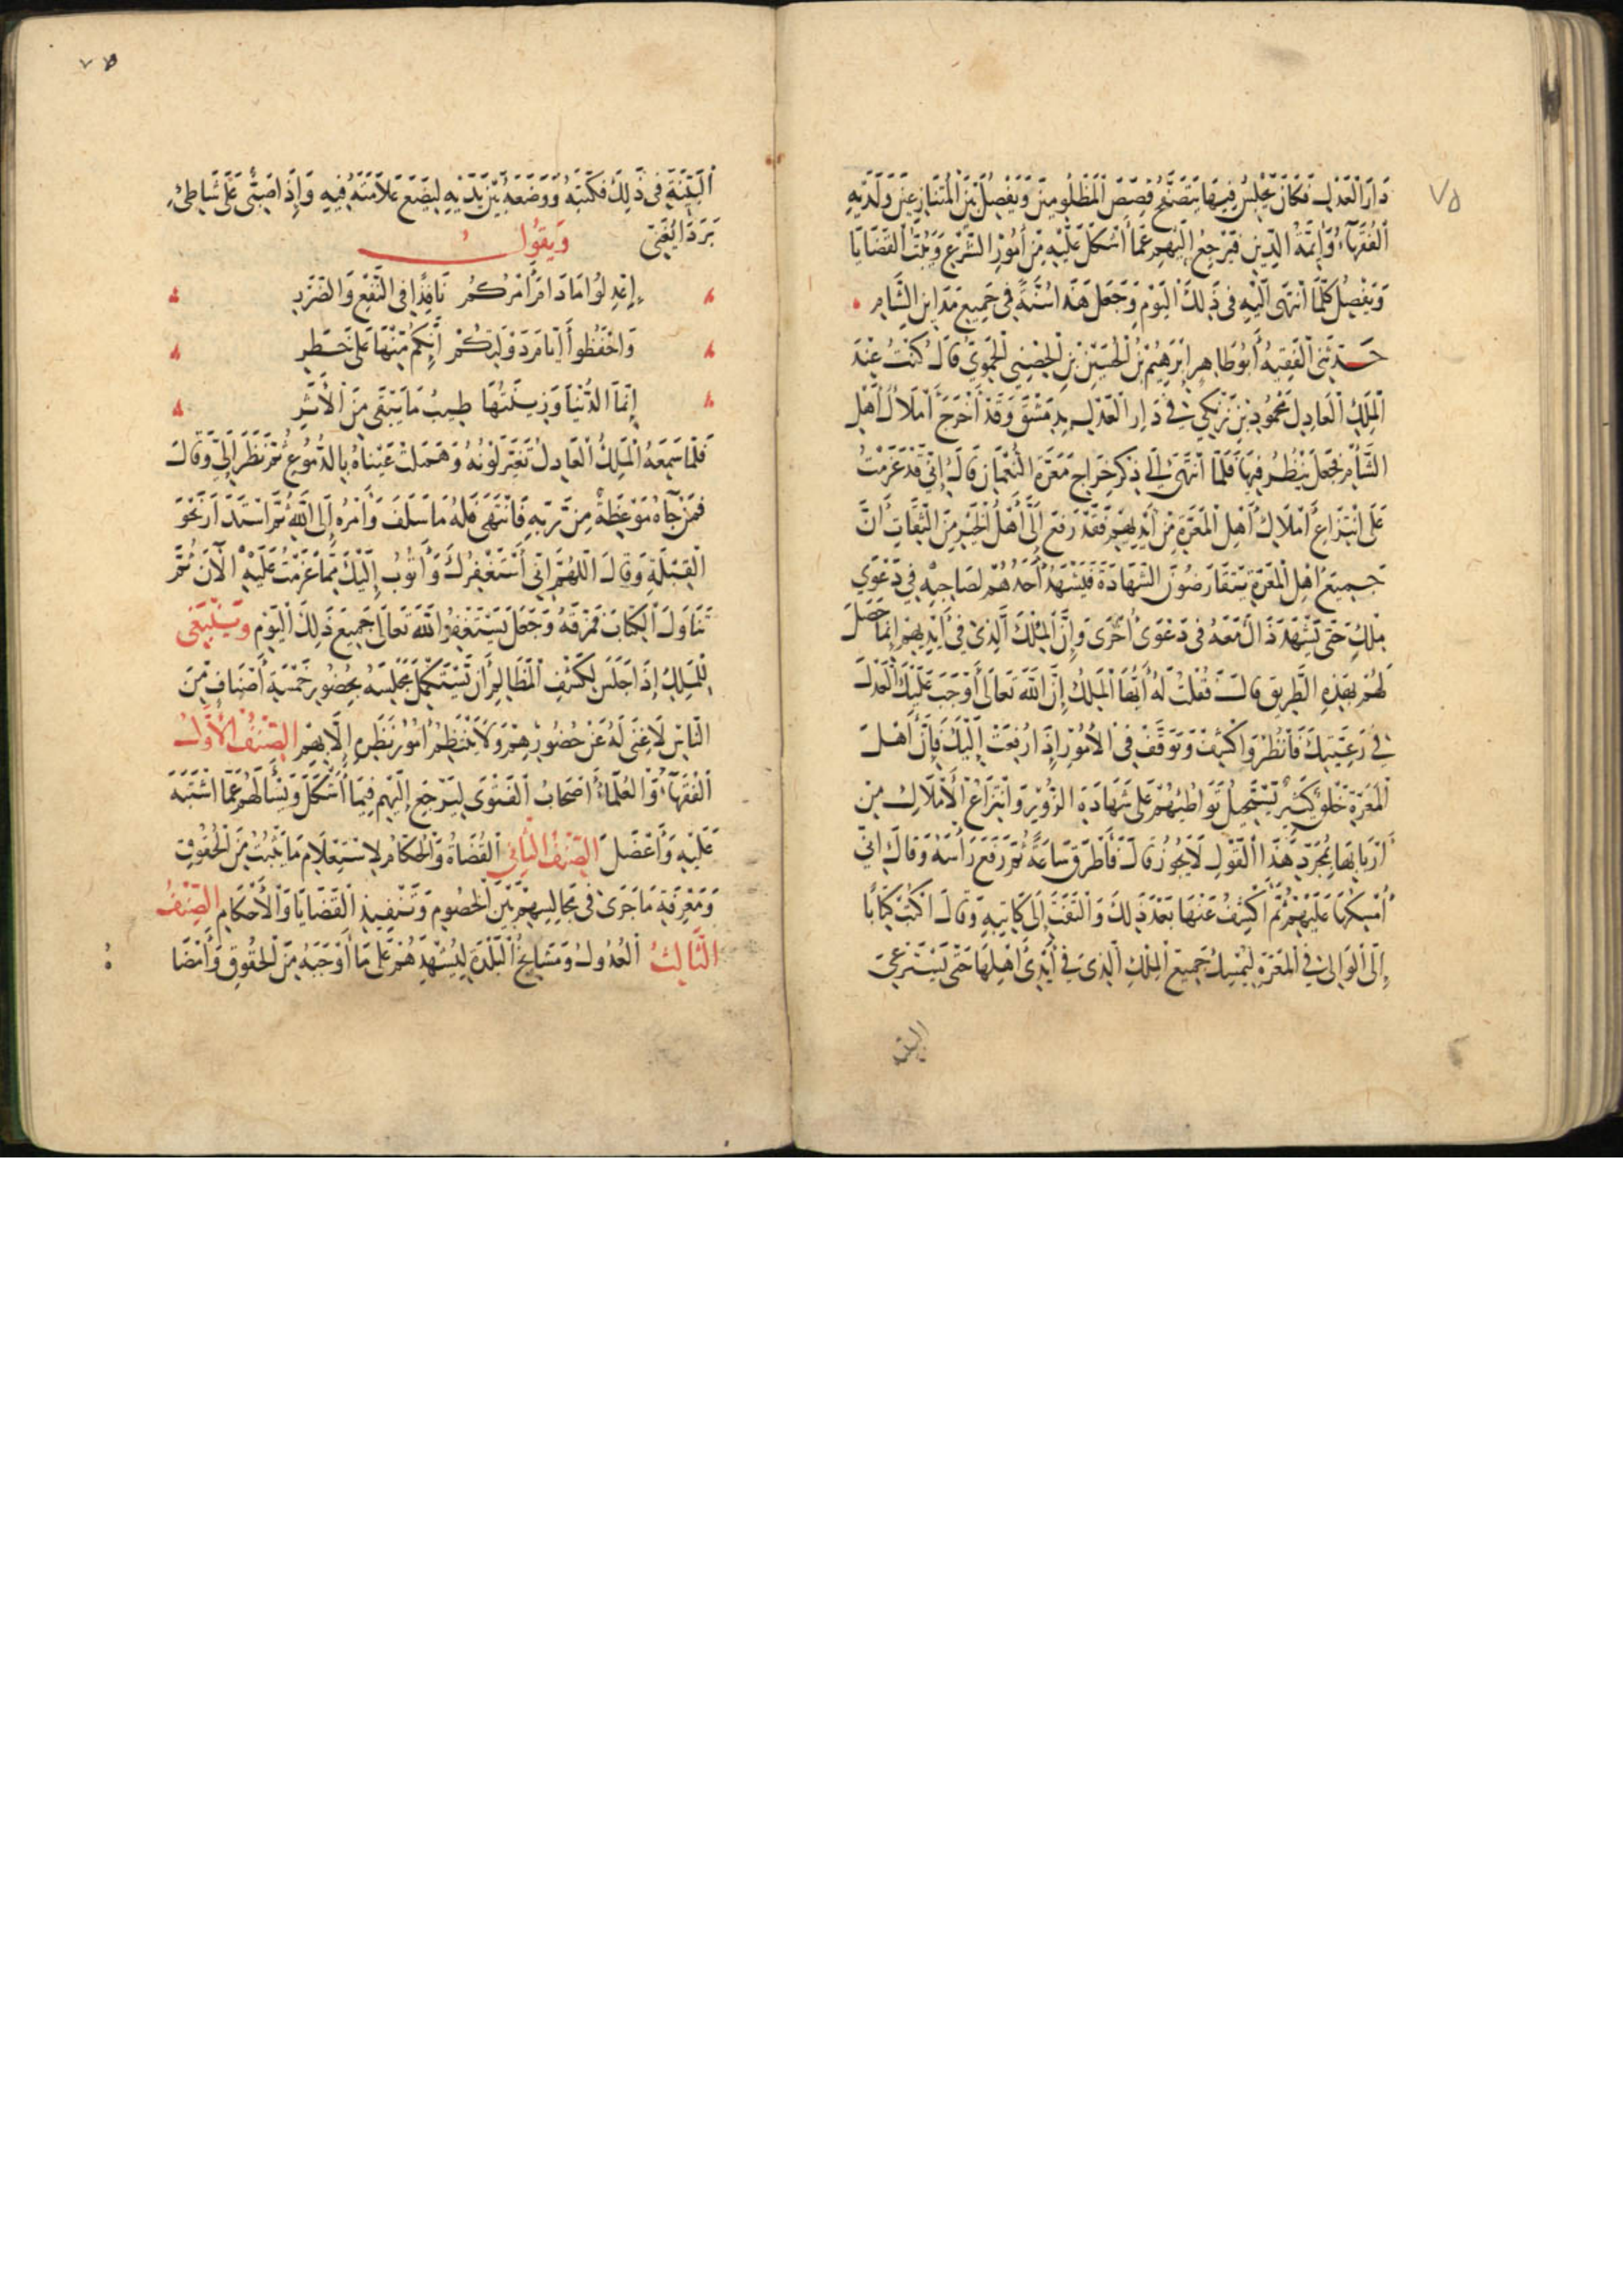 ٧٥
دَارَ الْعَدْلِ فَكَانَ يَجْلِسُ فِيهَا يَتَصَفَّحُ قِصَصَ الْمَظْلُومِينَ وَيَفْصِلُ بَيْنَ الْمُتَنَازِعِينَ وَلَدَيْهِ
الْفُقَهَاءُ وَائِمَّةُ الدِّينِ فَيَرْجِعُ إِلَيْهِمْ عَمَّا أَشْكَلَ عَلَيْهِ مِنْ أُمُورِ الشَّرْعِ وَيَبُتُّ الْقَضَايَا
وَيَفْصِلُ كُلَّمَا انْتَهَى الَيْهِ فِى ذَلِكَ الْيَوْمِ وَجَعَلَ هَذَا سُنَّةً فِى جَمِيعِ مَدَاينِ الشَّامِ
حَدَّثَنِى الْفَقِيهُ أَبُو طَاهِرٍ ابْرَهِيمُ بْنُ الْحُسَيْنِ بْنِ الْحِصْنِى الْحَمَوِيّ قَالَ كُنْتُ عِنْدَ
الْمَلِكِ الْعَادِلِ مَحْمُودِ بْنِ زَنْكِي فِي دَارِ الْعَدْلِ بِدِمَشْقَ وَقَدْ أَخْرَجَ أَمْلَاكَ أَهْلِ
الشَّأْمِ فَجَعَلَ يَنْظُرُ فِيهَا فَلَمَّا انْتَهَى إِلَى ذِكْرِ خَرَاجِ مَعَرَّةَ النُّعْمَانِ قَالَ إِنِّي قَدْ عَزَمْتُ
عَلَى انْتِزَاعِ أَمْلَاكِ أَهْلِ الْمَعَرَّةِ مِنْ أَيْدِيهِمْ فَقَدْ رَفَعَ إِلَىَّ أَهْلُ الْخَيْرِ مِنَ الثِّقَاتِ أَنَّ
جَمِيعَ اهْلِ الْمَعَرَّةِ يَتَقَارَضُونَ الشَّهَادَةَ فَيَشْهَدُ أَحَدُهُمْ لِصَاحِبِهِ فِي دَعْوَى
مِلْكٍ حَتَّى يَشْهَدَ ذَاكَ مَعَهُ فِى دَعْوَى أُخْرَى وَإِنَّ الْمِلْكَ الَّذِىْ فِى أَيْدِيهِمْ إِنَّمَا حَصَلَ
لَهُمْ بِهَذِهِ الطَّرِيقِ قَالَ فَقُلْتُ لَهُ أَيُّهَا الْمَلِكُ إِنَّ اللّٰهَ تَعَالَى أَوْجَبَ عَلَيْكَ الْعَدْلَ
فِي رَعِيَّتِكَ فَانْظُرْ وَاكْشِفْ وَتَوَقَّفْ فِى الْأُمُورِ إِذَا رُفِعَتْ إِلَيْكَ فَإِنَّ أَهْلَ
الْمَعَرَّةِ خَلْقٌ كَثِيرٌ يَسْتَحِيلُ تَوَاطُئِهُمْ عَلَى شَهَادَةِ الزُّوْرِ وَانْتِزَاعُ الْأَمْلَاكِ مِنْ
أَرْبَابِهَا بِمُجَرَّدِ هَذَا الْقَوْلِ لَا يَجُوزُ قَالَ فَأَطْرَقَ سَاعَةً ثُمَّ رَفَعَ رَأْسَهُ وَقَالَ انّى
أُمْسِكُهَا عَلَيْهِمْ ثُمَّ أَكْشِفُ عَنْهَا بَعْدَ ذَلِكَ وَالْتَفَتَ إِلَى كَاتِبِهِ وَقَالَ اكْتُبْ كِتَابًا
إِلَى الْوَالِى فِى الْمَعَرَّةِ لِيُمْسِكَ جَمِيعَ الْمِلْكِ الَّذِى فِي أَيْدِى أَهْلِهَا حَتَّى يَسْتَرْعِيَ
البيّنة
٧٥
الْبَيِّنَةَ فِى ذَلِكَ فَكَتَبَهُ وَوَضَعَهُ بَيْنَ يَدَيْهِ لِيَضَعَ عَلَامَتَهُ فِيهِ وَإِذَا صَبِىٌّ عَلَى شَاطِئِ
بَرَدَا يُغَنِّى وَيَقُولُ
إِعْدِلُوا مَادَامَ أَمْرُكُمُ نَافِذًا فِى النَّفْعِ وَالضَّرَرِ
وَاحْفَظُوا أَيَّامَ دَوْلَتِكُمْ أَنَّكُمْ مِنْهَا عَلَى خَطَرِ
إِنَّمَا الدُّنْيَا وَزِينَتُهَا طِيبُ مَا يَبْقَى مِنَ الْأَثَرِ
فَلَمَّا سَمِعَهُ الْمَلِكُ الْعَادِلُ تَغَيَّرَ لَوْنُهُ وَهَمَلَتْ عَيْنَاهُ بِالدُّمُوعِ ثُمَّ نَظَرَ إِلَيَّ وَقَالَ
فَمَنْ جَآءَهُ مَوْعِظَةٌ مِنْ رَبِّهِ فَانْتَهَى فَلَهُ مَا سَلَفَ وَأَمْرُهُ إِلَى اللّٰهِ ثُمَّ اسْتَدَارَ نَحْوَ
الْقِبْلَةِ وَقَالَ اللَّهُمَّ انِّى أَسْتَغْفِرُكَ وَأَتُوبُ إِلَيْكَ مِمَّا عَزَمْتُ عَلَيْهِ الْآنَ ثُمَّ
تَنَاوَلَ الْكِتَابَ فَمَزَّقَهُ وَجَعَلَ يَسْتَغْفِرُ اللّٰهَ تَعَالَى جَمِيعَ ذَلِكَ الْيَوْمِ وَيَنْبَغِى
لِلْمَلِكِ إِذَا جَلَسَ لِكَشْفِ الْمَظَالِمِ أَنْ يَسْتَكْمِلَ مَجْلِسَهُ بِحُضُورِ خَمْسَةِ أَصْنَافٍ مِنَ
النَّاسِ لَا غِنَى لَهُ عَنْ حُضُورِهِمْ وَلَا يَنْتَظِمُ أُمُورُ نَظَرِهِ إِلَّا بِهِمْ الصِّنْفُ الْأَوَّلُ
الْفُقَهَآءُ وَالْعُلَمَاءُ أَصْحَابُ الْفَتْوَى لِيَرْجِعَ إِلَيْهِمْ فِيمَا أَشْكَلَ وَيَسْأَلَهُمْ عَمَّا اشْتَبَهَ
عَلَيْهِ وَأَعْضَلَ الصِّنْفُ الثَّانِى الْقُضَاةُ وَالْحُكَّامُ لِاسْتِعْلَامِ مَا يَثْبُتُ مِنَ الْحُقُوقِ
وَمَعْرِفَةِ مَا جَرَى فِى مَجَالِسِهِمْ بَيْنَ الْخُصُومِ وَتَنْفِيذِ الْقَضَايَا وَالْأَحْكَامِ الصِّنْفُ
الثَّالِثُ الْعُدُولُ وَمَشَايِخُ الْبَلْدَةِ لِيُشْهِدَهُمْ عَلَى مَا أَوْجَبَهُ مِنَ الْحُقُوقِ وَأَمْضَا